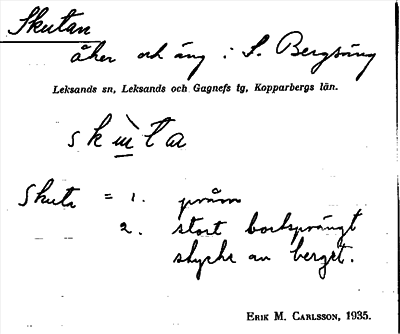 Skutan
åker och äng i S. Bergsäng
Leksands sn, Leksands och Gagnefs tg, Kopparbergs län.
skùta
Skuta = 1. pråm
2. stort bortsprängt
stycke av berget.
ERIK M. CARLSSON, 1935.